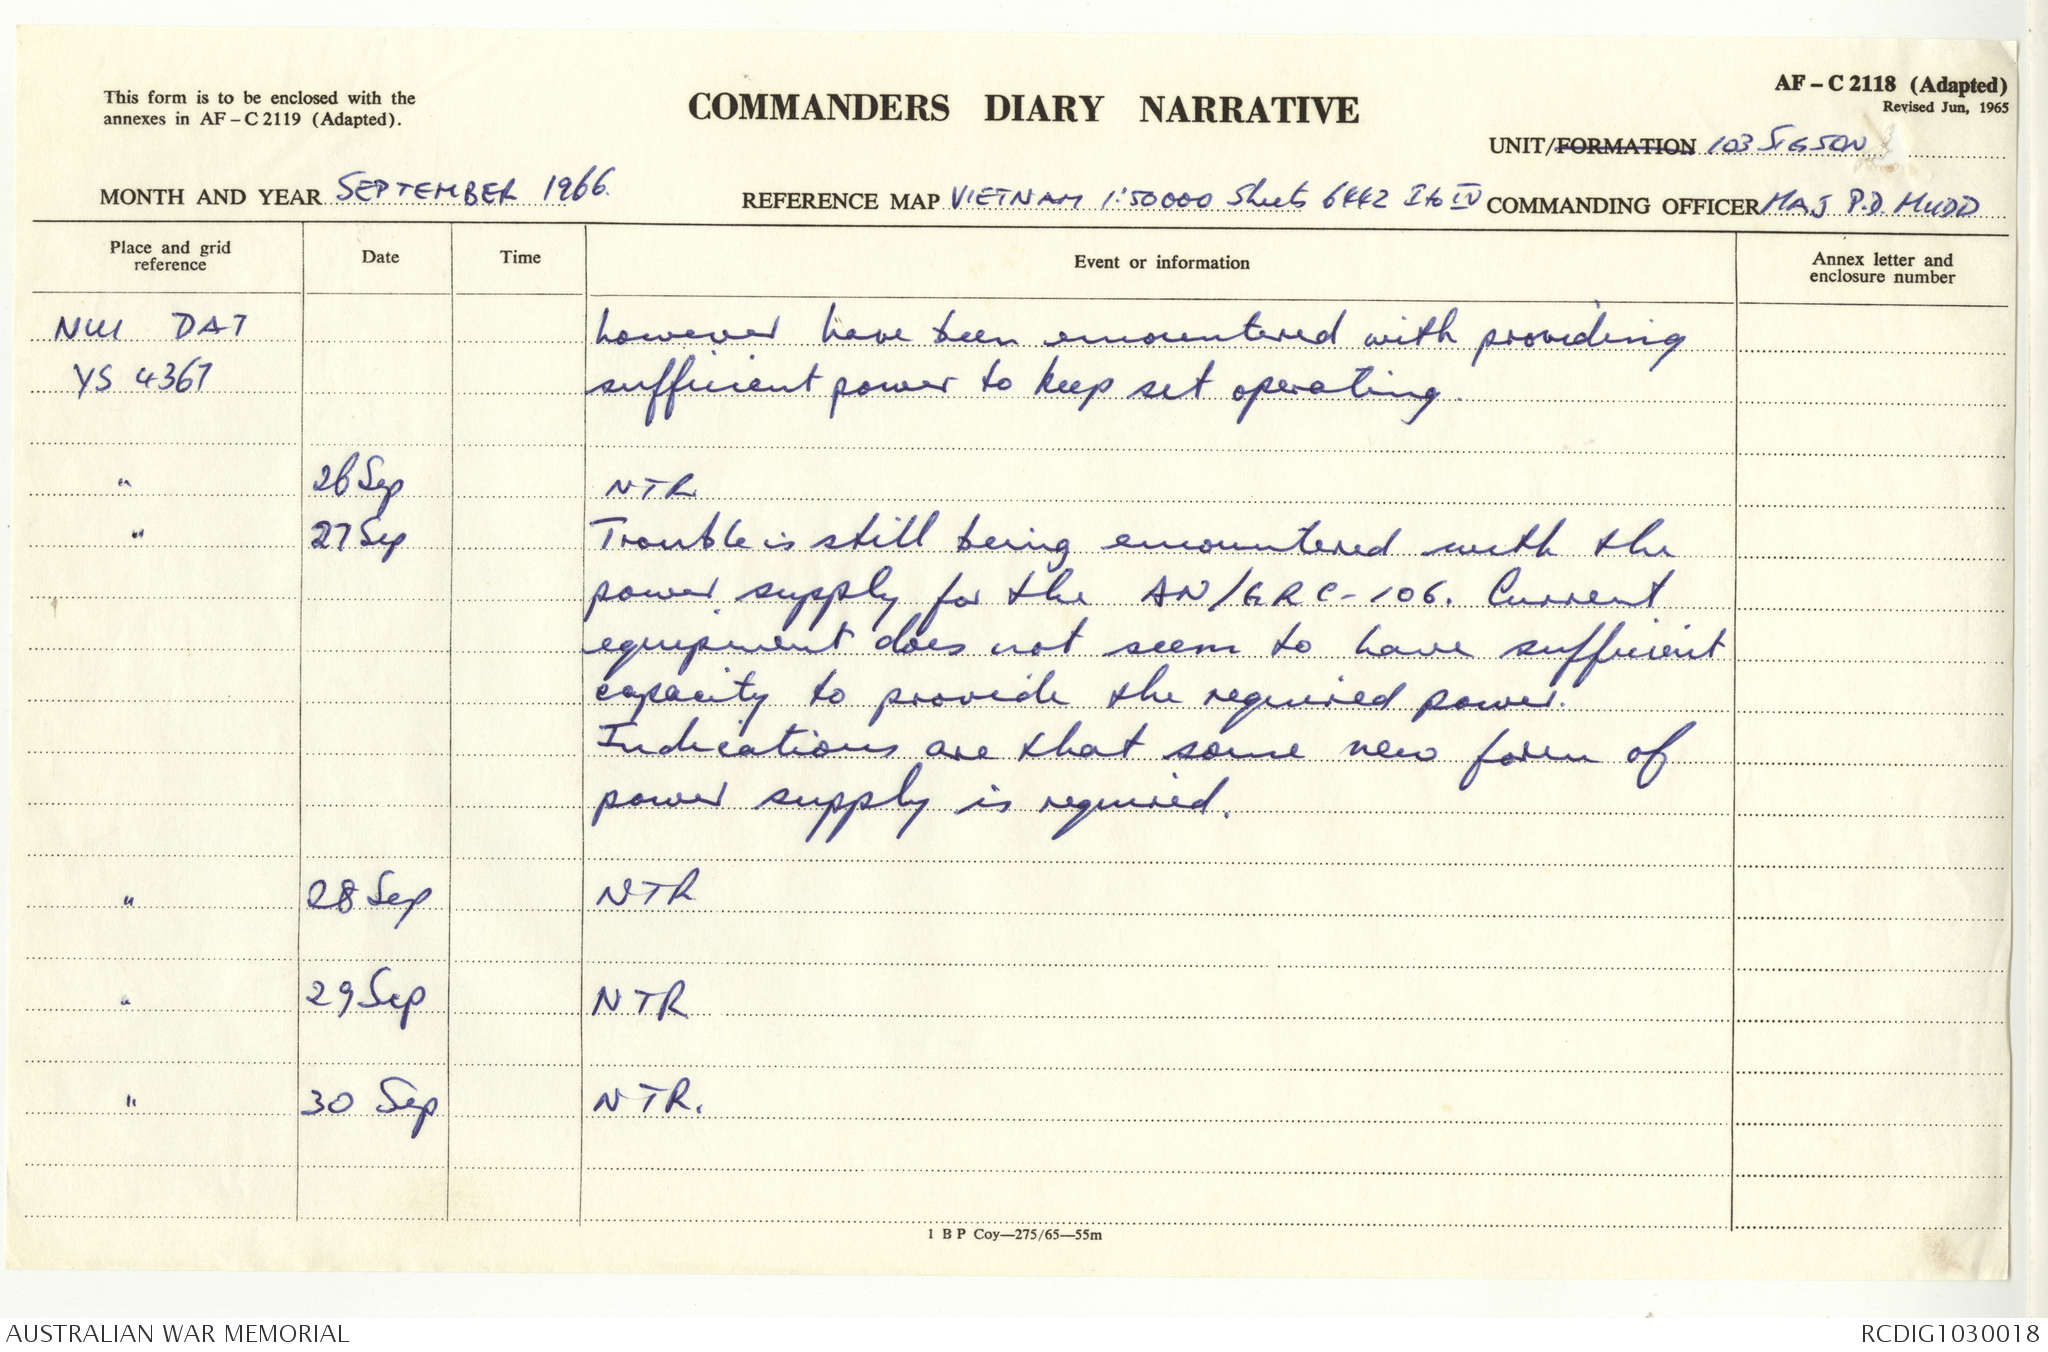 This form is to be enclosed with the
annexes in AF – C 2119 (Adapted).
COMMANDERS DIARY NARRATIVE
AF – C 2118 (Adapted)
Revised Jun, 1965
UNIT/FORMATION 103 SIGSQN
MONTH AND YEAR SEPTEMBER 1966.
REFERENCE MAP VIETNAM 1:50000 Sheets 6442 I to IV
COMMANDING OFFICER MAJ P.D. MUDD
Place and grid
reference
Date
Time
Event or information
Annex letter and
enclosure number
NUI DAT however have been encountered with providing
YS 4367 sufficient power to keep set operating.
" 26 Sep NTR
" 27 Sep Trouble is still being encountered with the
power supply for the AN/GRC-106. Current
equipment does not seem to have sufficient
capacity to provide the required power.
Indications are that some new form of
power supply is required.
" 28 Sep NTR
" 29 Sep NTR
" 30 Sep NTR.
1 B P Coy—275/65—55m
AUSTRALIAN WAR MEMORIAL
RCDIG1030018